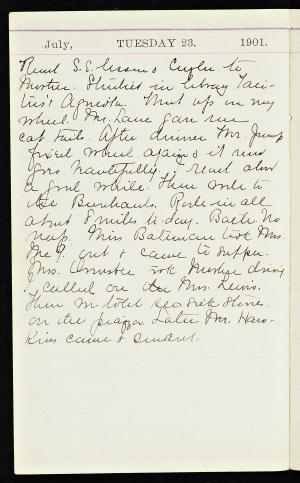 July, TUESDAY 23. 1901.
Read S.S. lesson & to
Mother. Studied in library Taci-
tus's Agricola. Went up on my
wheel. Mr. Lane gave me
cat tails. After dinner Mr. Jump
fixed wheel again & it now
goes beautifully. I read alone
a good while. Then rode to
the Burchards. Rode in all
about 8 miles to-day. Bath. No
nap. Miss Bateman took Mrs.
Mc out & came to supper.
Mrs. took Mother driving
& called on the Mrs. Lewis.
Then
on the piazza. Later Mr. Haw-
kins came & smoked.